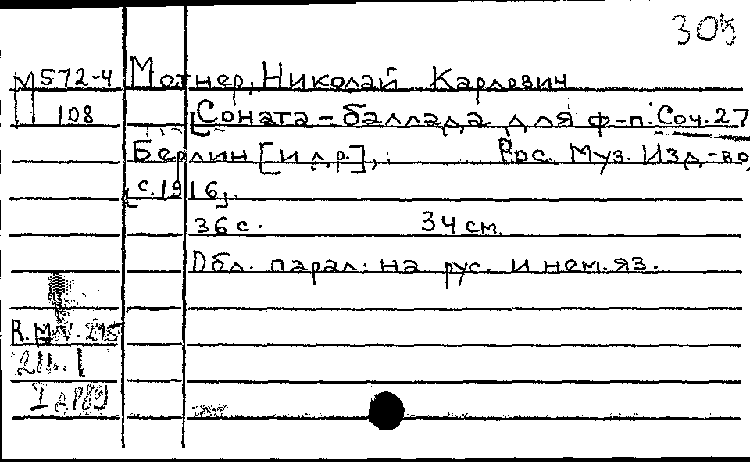 305
М 572-4 Мотнер, Николай Карлович
108 [Соната-баллада для ф-п. Соч. 27
Берлин [и др.], Рос. Муз. Изд-во,
[с. 1916].
36 с. 34 см.
Обл. парал. на рус. и нем. яз.
R.M.V. 215